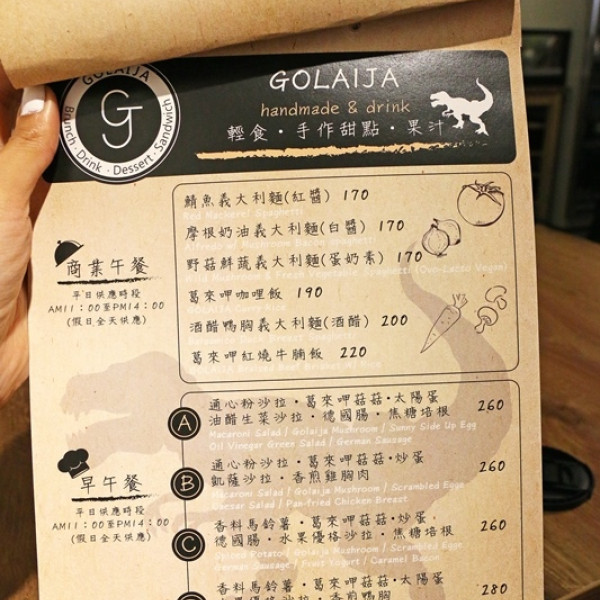 GOLAIJA
Brunch · Drink · Dessert · Sandwich
GOLAIJA
handmade & drink
輕食・手作甜點・果汁
商業午餐
平日供應時段
AM11:00至PM14:00
(假日全天供應)
鯖魚義大利麵(紅醬) 170
Red Mackerel Spaghetti
摩根奶油義大利麵(白醬) 170
Alfredo w/ Mushroom Bacon Spaghetti
野菇鮮蔬義大利麵(蛋奶素) 170
Wild Mushroom & Fresh Vegetable Spaghetti (Ovo-Lacto Vegan)
葛來呷咖哩飯 190
酒醋鴨胸義大利麵(酒醋) 200
Duck Breast Spaghetti
葛來呷紅燒牛腩飯 220
GOLAIJA Braised Beef Brisket w/ Rice
早午餐
平日供應時段
AM11:00至PM14:00
(假日全天供應)
A
通心粉沙拉・葛來呷菇菇・太陽蛋
油醋生菜沙拉・德國腸・焦糖培根 260
Macaroni Salad / Golaija Mushroom / Sunny Side Up Egg
Oil Vinegar Green Salad / German Sausage
B
通心粉沙拉・葛來呷菇菇・炒蛋
凱薩沙拉・香煎雞胸肉 260
Macaroni Salad / Golaija Mushroom / Scrambled Eggs
Caesar Salad / Pan-fried Chicken Breast
C
香料馬鈴薯・葛來呷菇菇・炒蛋
德國腸・水果優格沙拉・焦糖培根 260
Spiced Potato / Golaija Mushroom / Scrambled Eggs
German Sausage / Fruit Yogurt / Caramel Bacon
香料馬鈴薯・葛來呷菇菇・太陽蛋
280